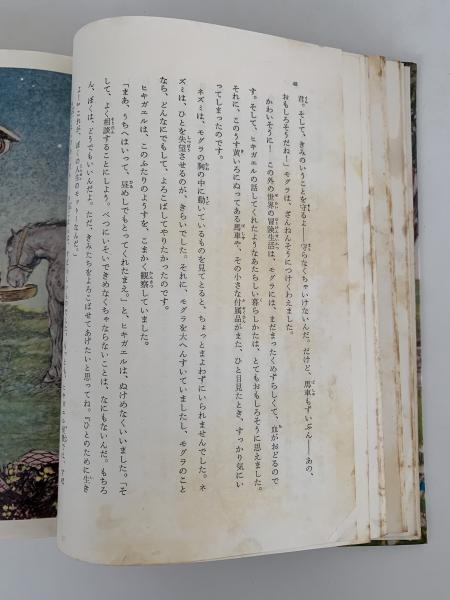 君。そして、きみのいうことを守るよ——守らなくちゃいけないんだ。だけど、馬車もずいぶん——あの、
おもしろそうだね！」モグラは、ざんねんそうにつけくわえました。
かわいそうに——　この外の世界の冒険生活は、モグラには、まだまったくめずらしくて、血がおどるので
す。そして、ヒキガエルの話してくれたようなあたらしい暮らしかたは、とてもおもしろそうに思えました。
それに、このうす黄いろにぬってある馬車や、その小さな付属品がまた、ひと目見たとき、すっかり気にい
ってしまったのです。
ネズミは、モグラの胸の中に動いているものを見てとると、ちょっとまよわずにいられませんでした。ネ
ズミは、ひとを失望させるのが、きらいでした。それに、モグラを大へんすいていましたし、モグラのこと
なら、どんなにでもして、よろこばしてやりたかったのです。
ヒキガエルは、このふたりのようすを、こまかく観察していました。
「まあ、うちへはいって、昼めしでもとってくれたまえ。」と、ヒキガエルは、ぬけめなくいいました。「そ
して、よく相談することにしよう。べつにいそいできめなくちゃならないことは、なにもないんだ。もちろ
ん、ぼくは、どうでもいいんだよ。ただ、きみたちをよろこばせてあげたいと思ってね。『ひとのために生き
よ！』これが、ぼくの人生のモットーなんだ。」